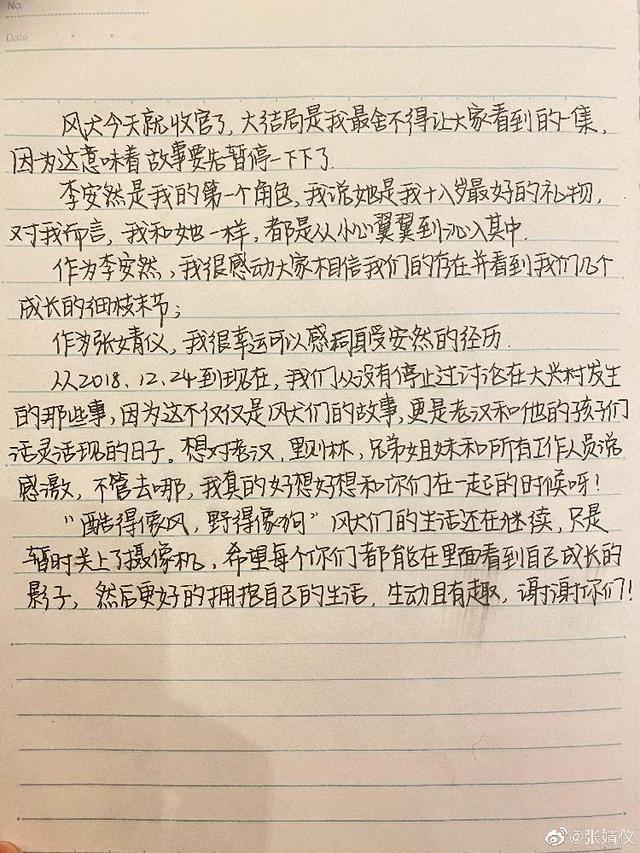 No.
Date
风犬今天就收官了，大结局是我最舍不得让大家看到的一集，
因为这意味着故事要先暂停一下下了.
李安然是我的第一个角色，我说她是我十八岁最好的礼物，
对我而言，我和她一样，都是从小心翼翼到沁入其中.
作为李安然，我很感动大家相信我们的存在并看到我们几个
成长的细枝末节；
作为张婧仪，我很幸运可以感同身受安然的经历.
从2018.12.24到现在，我们从没有停止过讨论在大兴村发生
的那些事，因为这不仅仅是风犬们的故事，更是老汉和他的孩子们
活灵活现的日子。想对老汉，野林，兄弟姐妹和所有工作人员说
感激，不管去哪，我真的好想好想和你们在一起的时候呀！
“酷得像风，野得像狗”风犬们的生活还在继续，只是
暂时关上了摄像机，希望每个你们都能在里面看到自己成长的
影子，然后更好的拥抱自己的生活，生动且有趣，谢谢你们！
@张婧仪